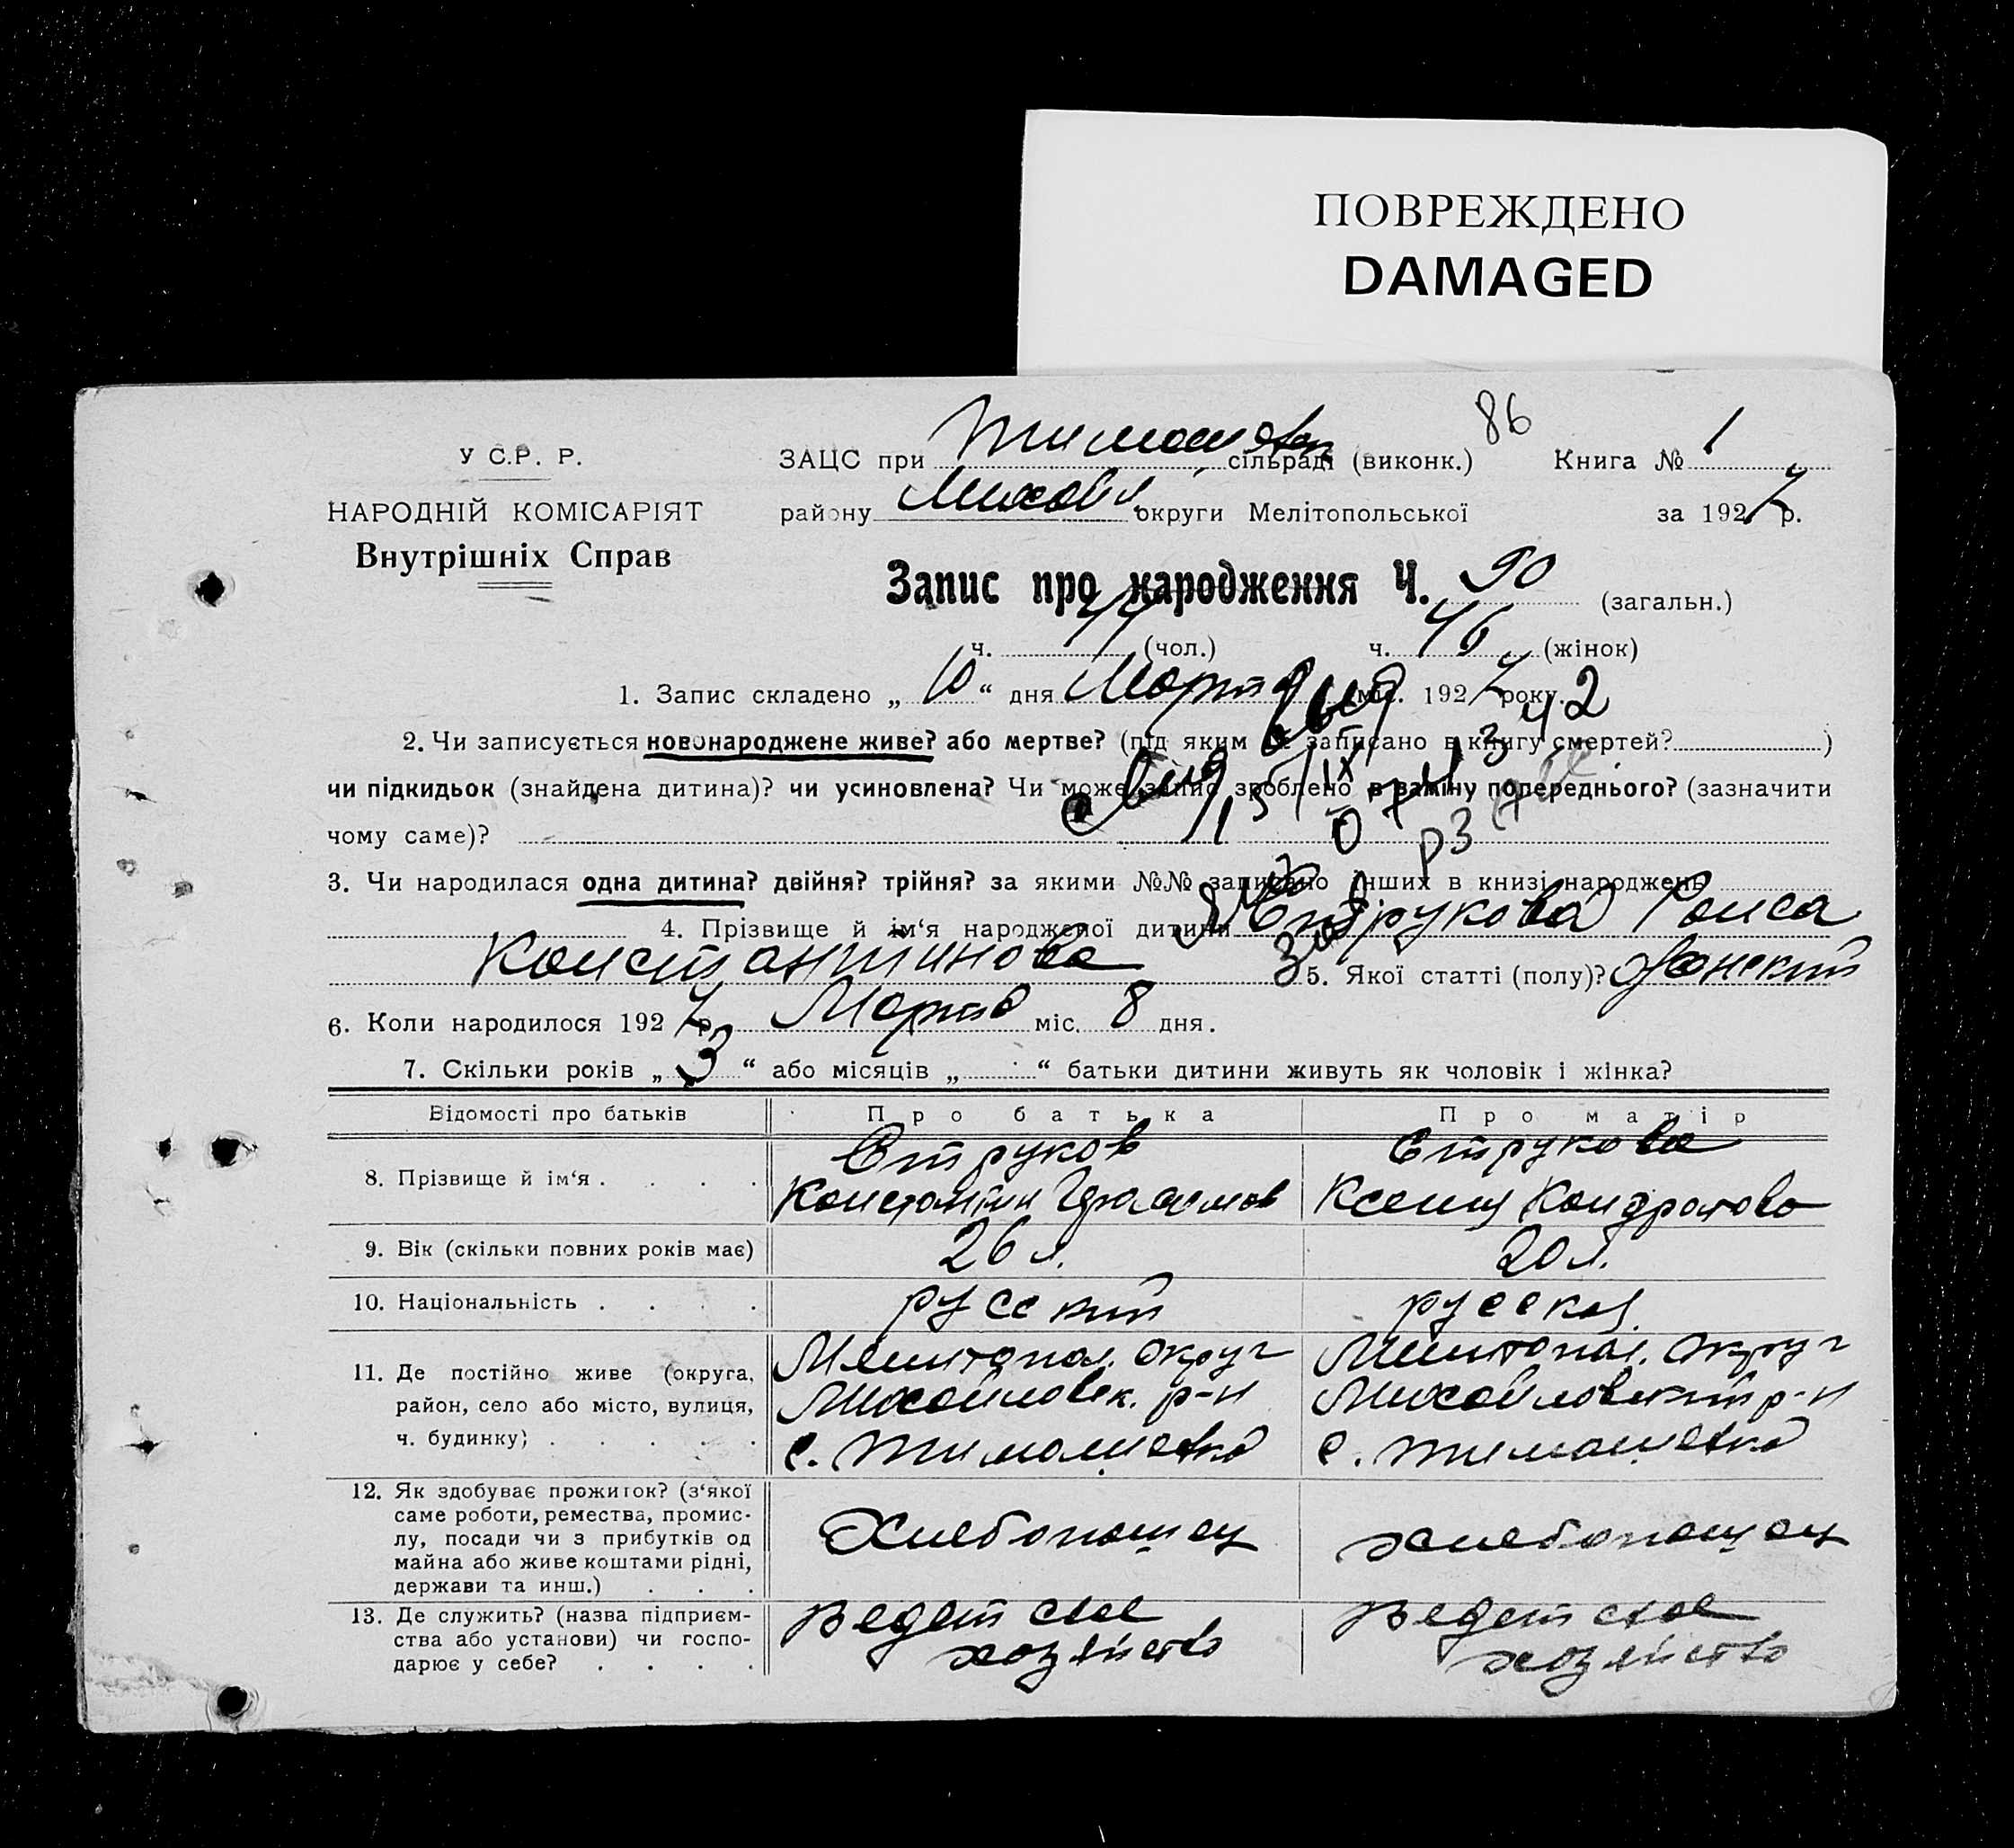 ПОВРЕЖДЕНО
DAMAGED
86
У С.Р. Р.
ЗАЦС при Тимошевк сільраді (виконк.) Книга № 1
НАРОДНІЙ КОМІСАРІЯТ
району Михайл округи Мелітопольської за 1927 р.
Внутрішніх Справ
Запис про народження Ч. 90 (загальн.)
ч. 44 (чол.) ч. 46 (жінок)
1. Запис складено „ 10 “ дня Марта міс. 1927 року.
2. Чи записується новонароджене живе? або мертве? (під яким № записано в книгу смертей? )
чи підкидьок (знайдена дитина)? чи усиновлена? Чи може запис зроблено в заміну попереднього? (зазначити
чому саме)?
3. Чи народилася одна дитина? двійня? трійня? за якими №№ записано інших в книзі народжень
4. Прізвище й ім‘я народженої дитини Струкова Раиса
Константинова 5. Якої статті (полу)? Женский
6. Коли народилося 1927 р. Марта міс. 8 дня.
7. Скільки років „ 3 “ або місяців „ “ батьки дитини живуть як чоловік і жінка?
Відомості про батьків Про батька Про матір
8. Прізвище й ім‘я . . . . Струков Струкова
Константин Герасимов Ксения Кондратова
9. Вік (скільки повних років має) 26 л. 20 л.
10. Національність . . . . русский русская
11. Де постійно живе (округа, Мелитопол. округ Мелитопол. округ
район, село або місто, вулиця, Михайловск. р-н Михайловский р-н
ч. будинку) . . . . . с. Тимошевка с. Тимошевка
12. Як здобуває прожиток? (з‘якої
саме роботи, ремества, промис-
лу, посади чи з прибутків од Хлебопашец хлебопашец
майна або живе коштами рідні,
держави та инш.) . . .
13. Де служить? (назва підприєм- Ведет свое Ведет свое
ства або установи) чи госпо- хозяйство хозяйство
дарює у себе? . . . .